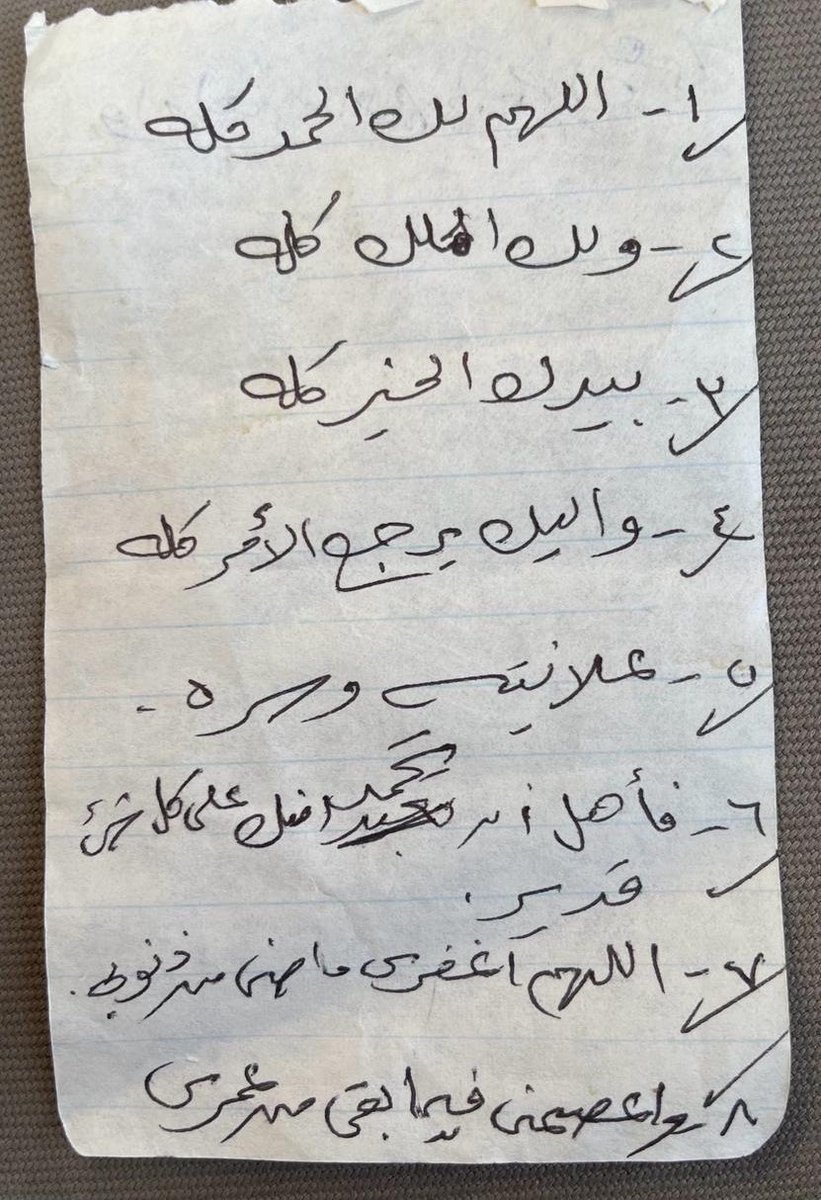 ١- اللهم لك الحمد كله
٢- ولك الملك كله
٣- بيدك الخير كله
٤- واليك يرجع الأمر كله
٥- علانيته وسره.
٦- فأهل أن تحمد انك على كل شئ
قدير.
٧- اللهم أغفرلى ما مضى من ذنوبى.
٨- واعصمنى فيما بقى من عمرى